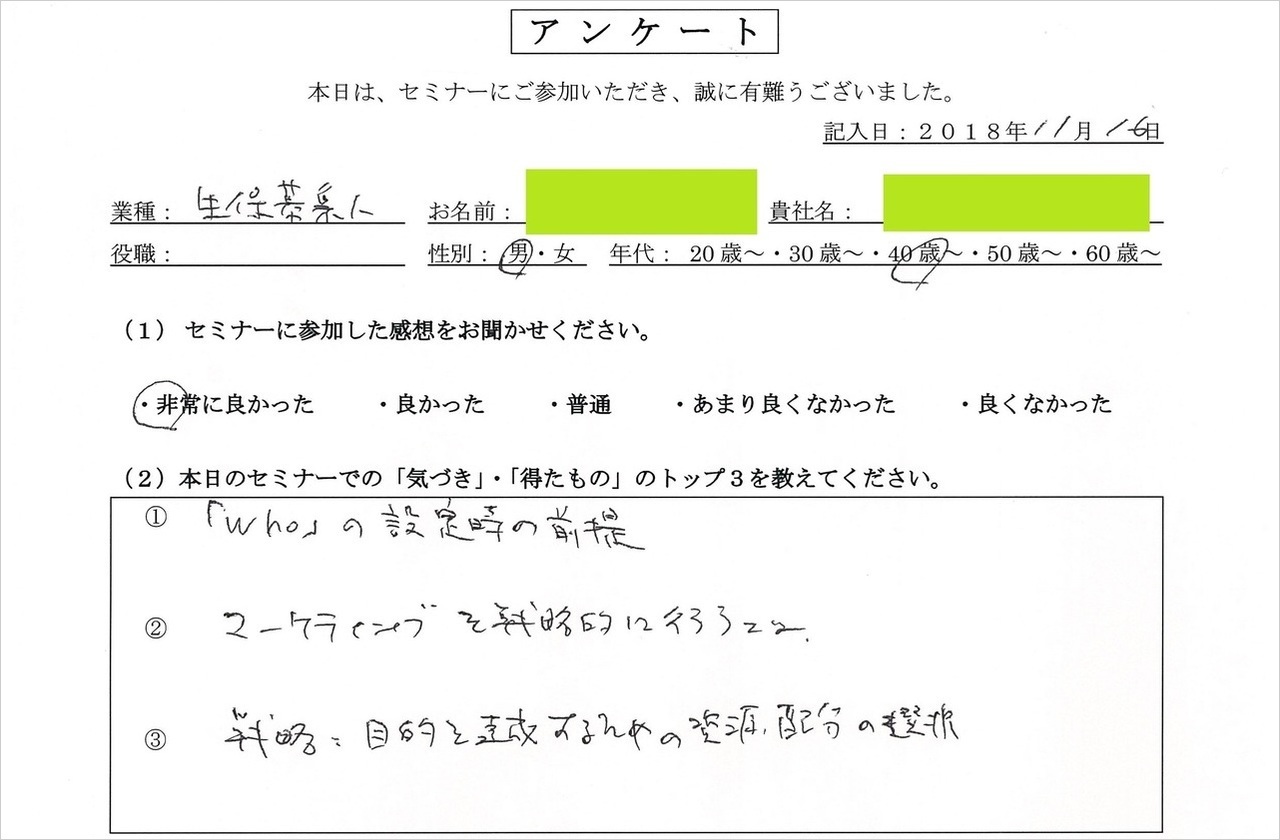 アンケート
本日は、セミナーにご参加いただき、誠に有難うございました。
記入日：２０１８年11月16日
業種：生保募集人 お名前： 貴社名：
役職： 性別：男・女 年代： 20歳～・30歳～・40歳～・50歳～・60歳～
（１） セミナーに参加した感想をお聞かせください。
・非常に良かった ・良かった ・普通 ・あまり良くなかった ・良くなかった
（２）本日のセミナーでの「気づき」・「得たもの」のトップ３を教えてください。
① 「Who」の設定時の前提
② マーケティングを戦略的に行うこと.
③ 戦略：目的を達成するための資源配分の選択